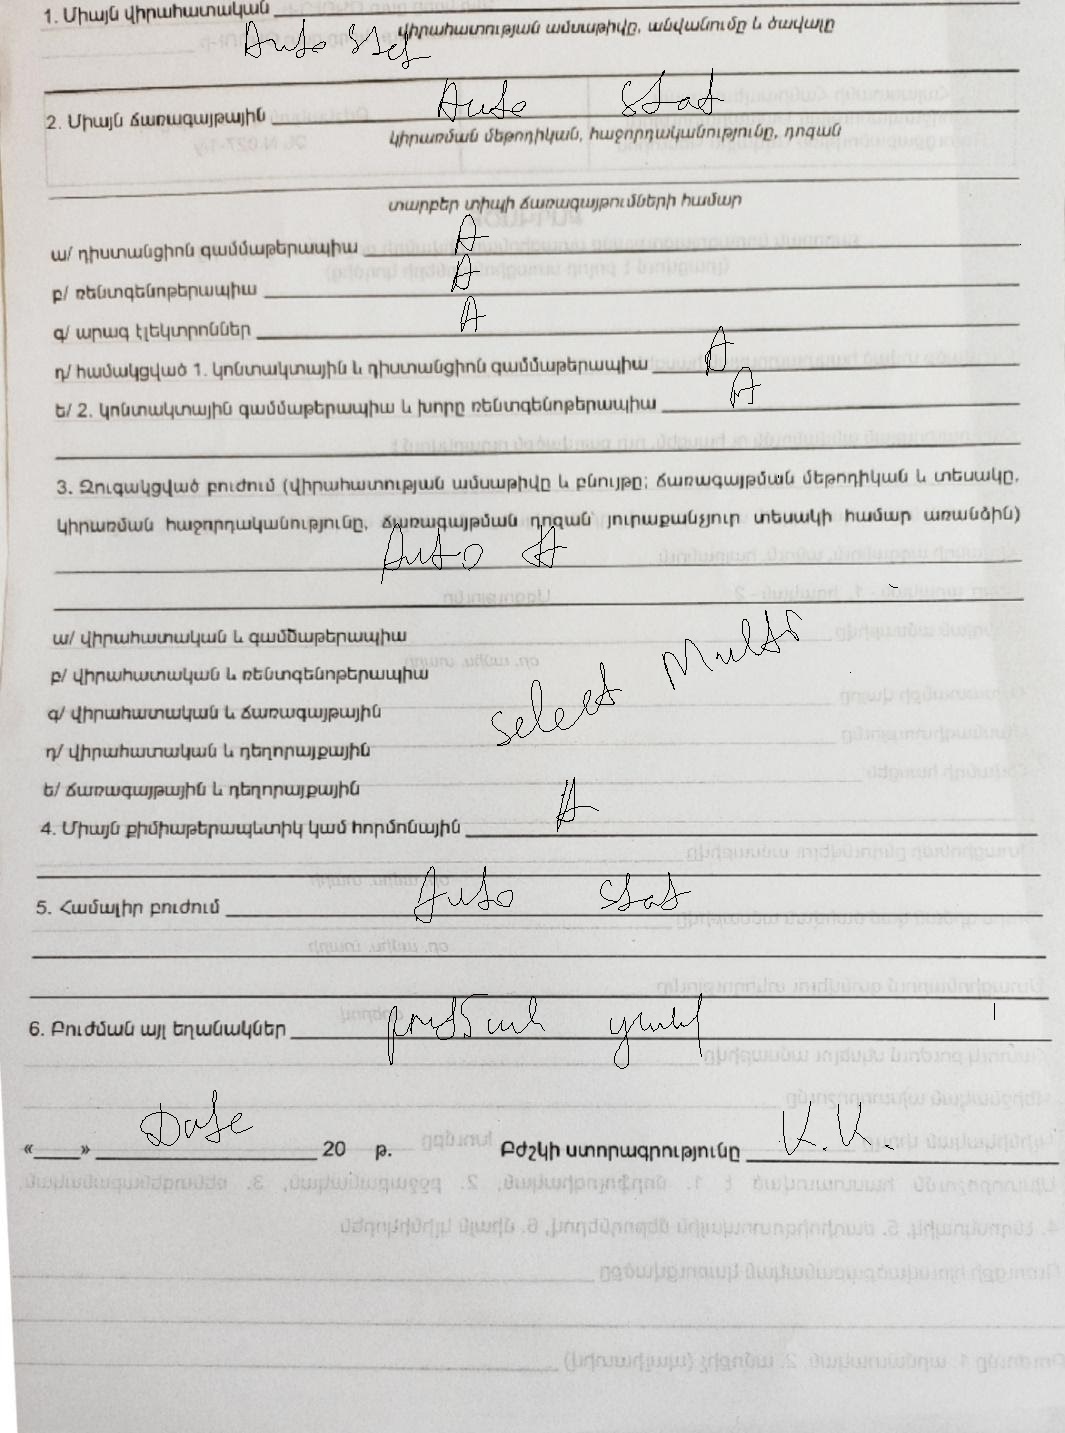 1. Միայն վիրահատական
վիրահատության ամսաթիվը, անվանումը և ծավալը
Auto Stat
2. Միայն ճառագայթային Auto Stat
կիրառման մեթոդիկան, հաջորդականությունը, դոզան
տարբեր տիպի ճառագայթումների համար
ա/ դիստանցիոն գամմաթերապիա A
բ/ ռենտգենոթերապիա A
գ/ արագ էլեկտրոններ A
դ/ համակցված 1. կոնտակտային և դիստանցիոն գամմաթերապիա A
ե/ 2. կոնտակտային գամմաթերապիա և խորը ռենտգենոթերապիա A
3. Զուգակցված բուժում (վիրահատության ամսաթիվը և բնույթը; ճառագայթման մեթոդիկան և տեսակը,
կիրառման հաջորդականությունը, ճառագայթման դոզան յուրաքանչյուր տեսակի համար առանձին)
Auto A
ա/ վիրահատական և գամմաթերապիա
բ/ վիրահատական և ռենտգենոթերապիա
գ/ վիրահատական և ճառագայթային
դ/ վիրահատական և դեղորայքային
ե/ ճառագայթային և դեղորայքային
select Multi
4. Միայն քիմիաթերապևտիկ կամ հորմոնային A
5. Համալիր բուժում Auto Stat
6. Բուժման այլ եղանակներ բուժման
«____» Date 20 թ. Բժշկի ստորագրությունը K.K.